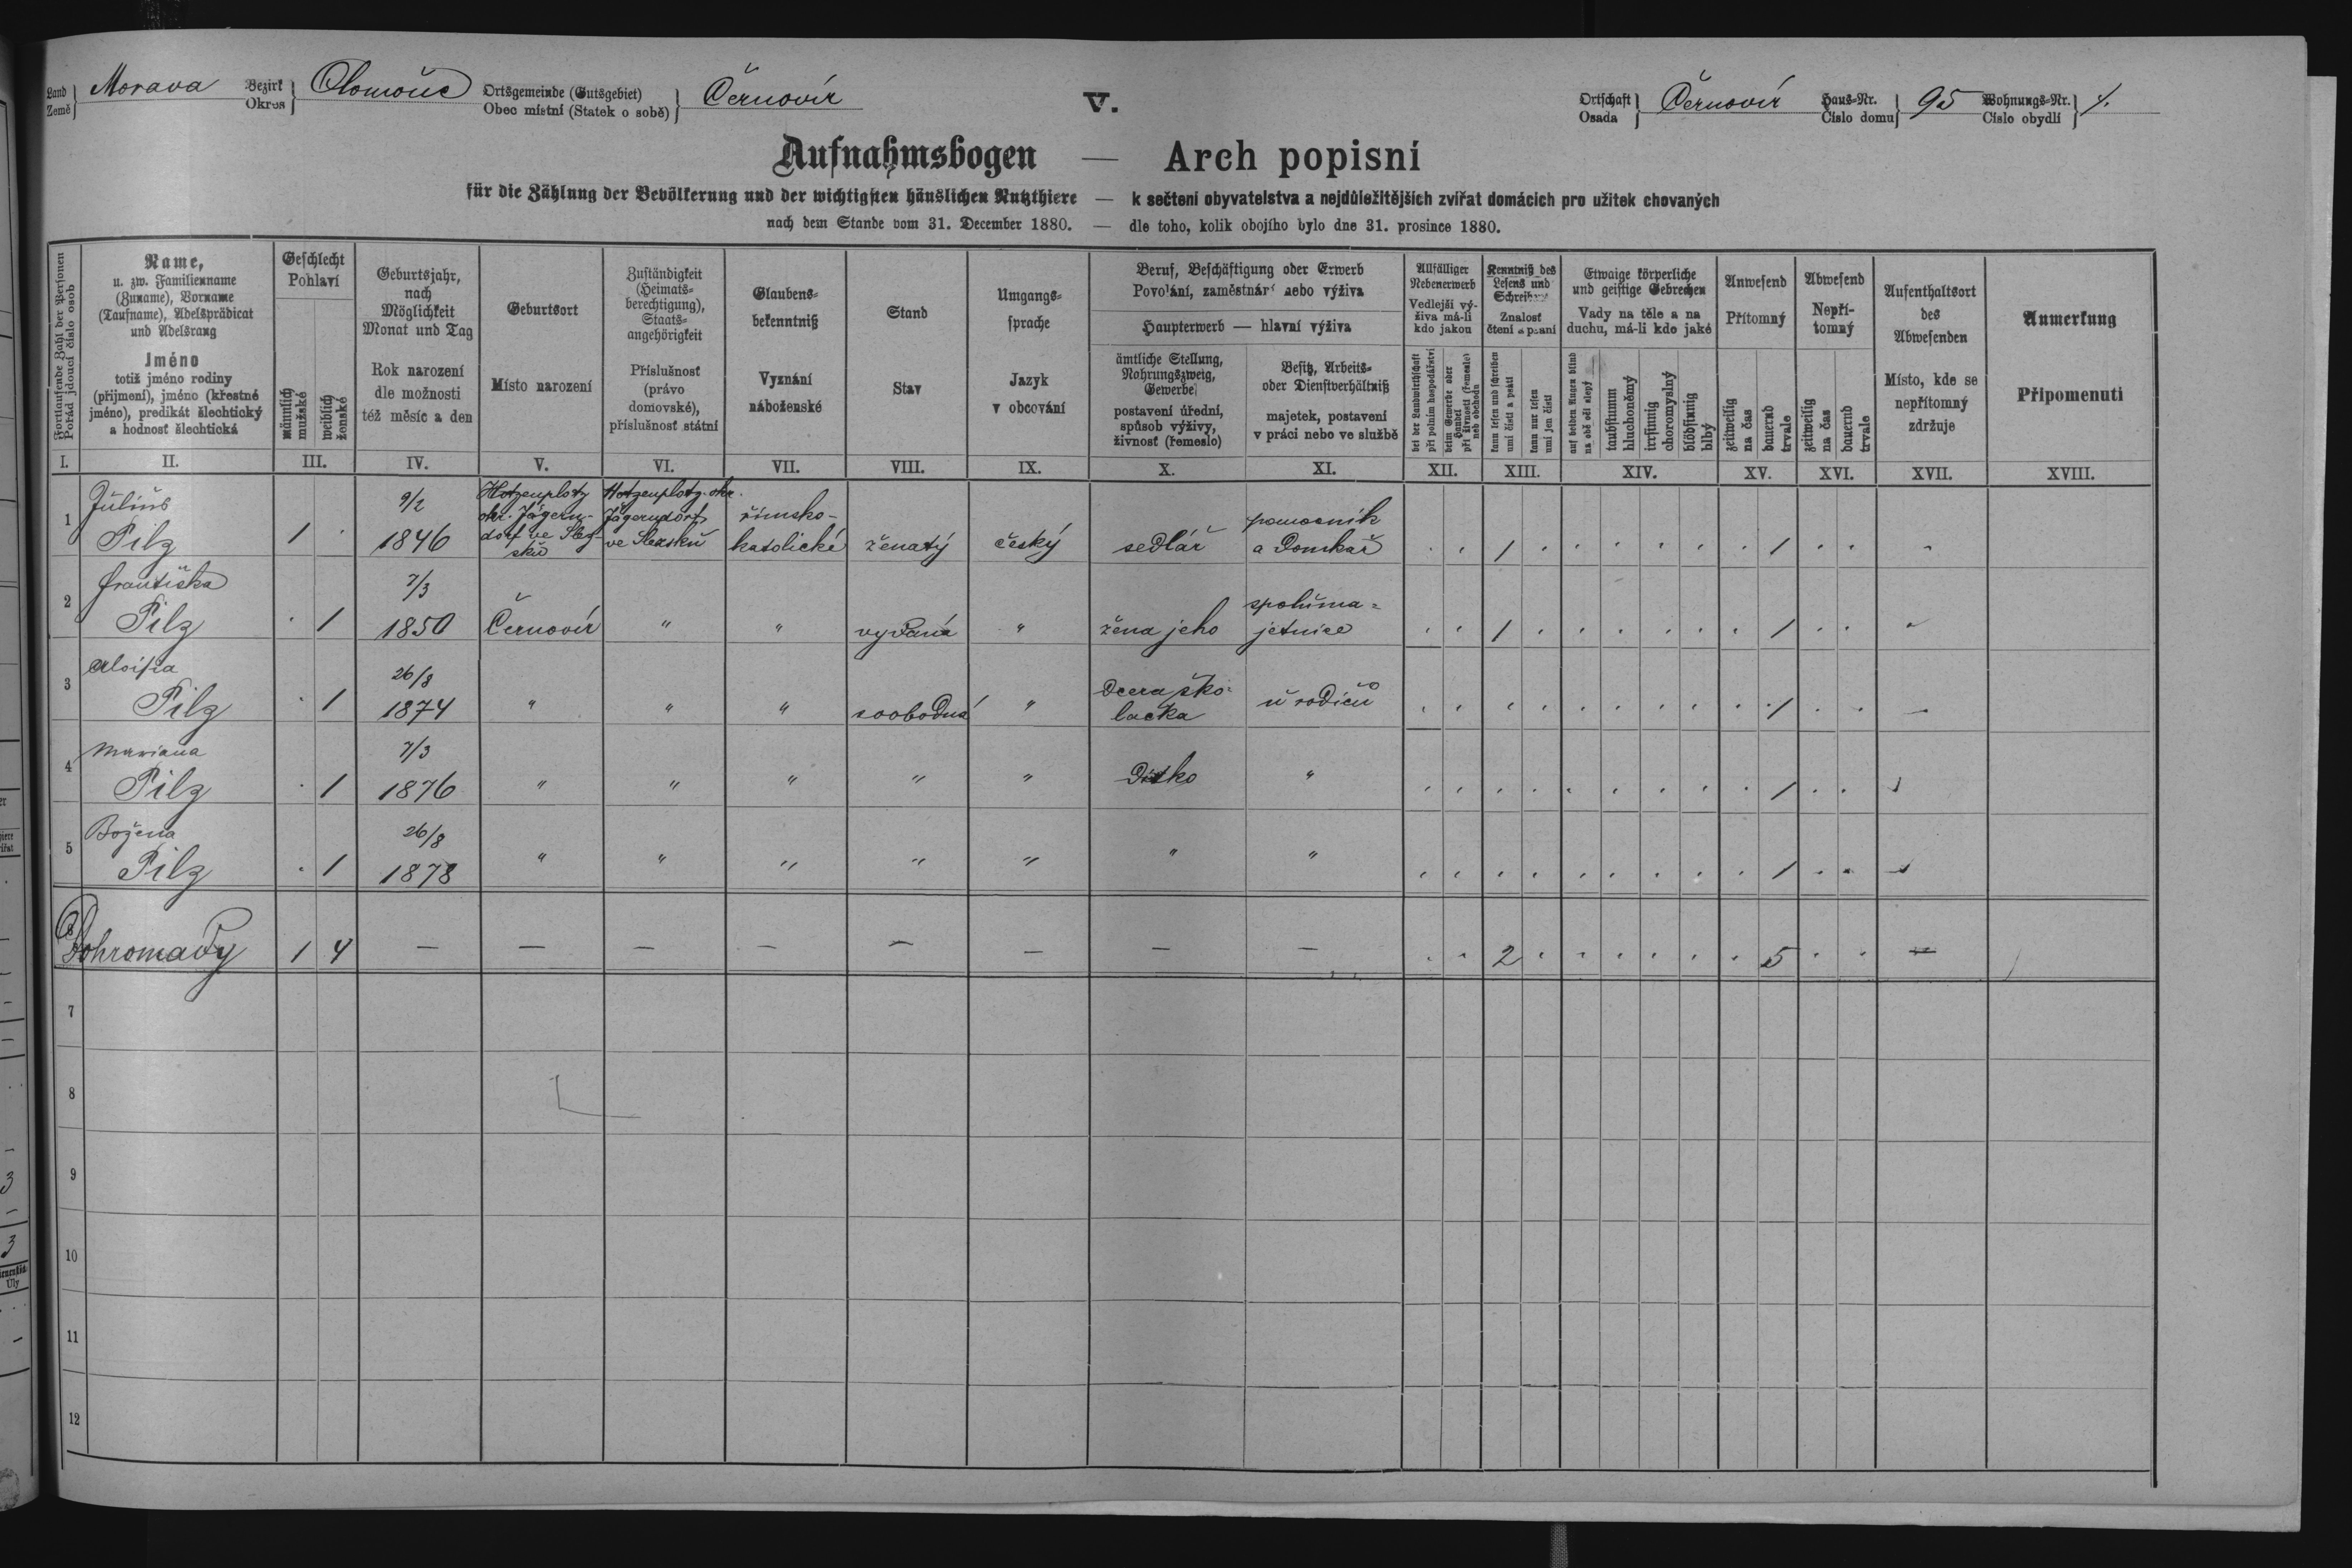 Land Země } Morava Bezirk Okres } Olomouc Ortsgemeinde (Gutsgebiet) Obec místní (Statek o sobě) } Černovír
V.
Ortschaft Osada } Černovír Haus-Nr. Číslo domu } 95 Wohnungs-Nr. Číslo obydlí }
Aufnahmsbogen — Arch popisní
für die Zählung der Bevölkerung und der wichtigsten häuslichen Nutzthiere — k sečtení obyvatelstva a nejdůležitějších zvířat domácích pro užitek chovaných
nach dem Stande vom 31. December 1880. — dle toho, kolik obojího bylo dne 31. prosince 1880.
Fortlaufende Zahl der Personen
Pořád jdoucí číslo osob
Name,
u. zw. Familienname
(Zuname), Vorname
(Taufname), Adelsprädicat
und Adelsrang
Jméno
totiž jméno rodiny
(příjmení), jméno (křestné
jméno), predikát šlechtický
a hodnost šlechtická
Geschlecht
Pohlaví
männlich
mužské
weiblich
ženské
Geburtsjahr,
nach
Möglichkeit
Monat und Tag
Rok narození
dle možnosti
též měsíc a den
Geburtsort
Místo narození
Zuständigkeit
(Heimats-
berechtigung),
Staats-
angehörigkeit
Příslušnosť
(právo
domovské),
příslušnosť státní
Glaubens-
bekenntniß
Vyznání
náboženské
Stand
Stav
Umgangs-
sprache
Jazyk
v obcování
Beruf, Beschäftigung oder Erwerb
Povolání, zaměstnání nebo výživa
Haupterwerb — hlavní výživa
ämtliche Stellung,
Nahrungszweig,
Gewerbe
postavení úřední,
spůsob výživy,
živnosť (řemeslo)
Besitz, Arbeits-
oder Dienstverhältniß
majetek, postavení
v práci nebo ve službě
Allfälliger
Nebenerwerb
Vedlejší vý-
živa má-li
kdo jakou
bei der Landwirthschaft
při polním hospodářství
beim Gewerbe oder
Handel
při živnosti (řemesle)
neb obchodu
Kenntniß des
Lesens und
Schreibens
Znalosť
čtení a psaní
kann lesen und schreiben
umí čísti a psáti
kann nur lesen
umí jen čísti
Etwaige körperliche
und geistige Gebrechen
Vady na těle a na
duchu, má-li kdo jaké
auf beiden Augen blind
na obě oči slepý
taubstumm
hluchoněmý
irrsinnig
choromyslný
blödsinnig
blbý
Anwesend
Přítomný
zeitweilig
na čas
dauernd
trvale
Abwesend
Nepří-
tomný
zeitweilig
na čas
dauernd
trvale
Aufenthaltsort
des
Abwesenden
Místo, kde se
nepřítomný
zdržuje
Anmerkung
Připomenutí
I. II. III. IV. V. VI. VII. VIII. IX. X. XI. XII. XIII. XIV. XV. XVI. XVII. XVIII.
1 Július
Pilz 1 · 9/2
1846 Hotzenplotz
okr. Jägern-
dorf ve Slez-
sku Hotzenplotz okr.
Jägerndorf
ve Slezsku římsko-
katolické ženatý český sedlář pomocník
a Domkař · · 1 · · · · · · 1 · · -
2 Františka
Pilz · 1 7/3
1850 Černovír " " vydaná " žena jeho spoluma-
jetnice · · 1 · · · · · · 1 · · -
3 Aloisia
Pilz · 1 26/8
1874 " " " svobodná " Dcera ško-
lačka u rodičů · · · · · · · · · 1 · · -
4 Mariana
Pilz · 1 7/3
1876 " " " " " Dítko " · · · · · · · · · 1 · ·
5 Božena
Pilz · 1 26/8
1878 " " " " " " " · · · · · · · · · 1 · ·
Dohromady 1 4 — — — — — — — — · · 2 · · · · · · 5 · · —
7
8
9
10
11
12